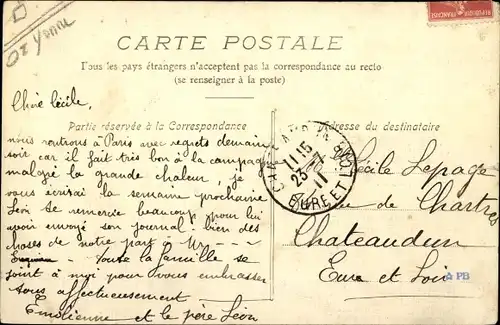 Oz Yonne
CARTE POSTALE
Tous les pays étrangers n'acceptent pas la correspondance au recto
(se renseigner à la poste)
Partie réservée à la Correspondance
Adresse du destinataire
Chère Cécile,
nous rentrons à Paris avec regrets demain
soir car il fait très bon à la campagne
malgré la grande chaleur, je
vous écrirai la semaine prochaine
Léon se remercie beaucoup pour lui
avoir envoyé son journal! bien des
choses de notre part à Mr
Toute la famille se
joint à moi pour vous embrasser
tous affectueusement
Emilienne et le père Léon
11 15
23
11
EURE ET L
Cécile Lepage
de Chartres
Chateaudun
Eure et Loir
PB